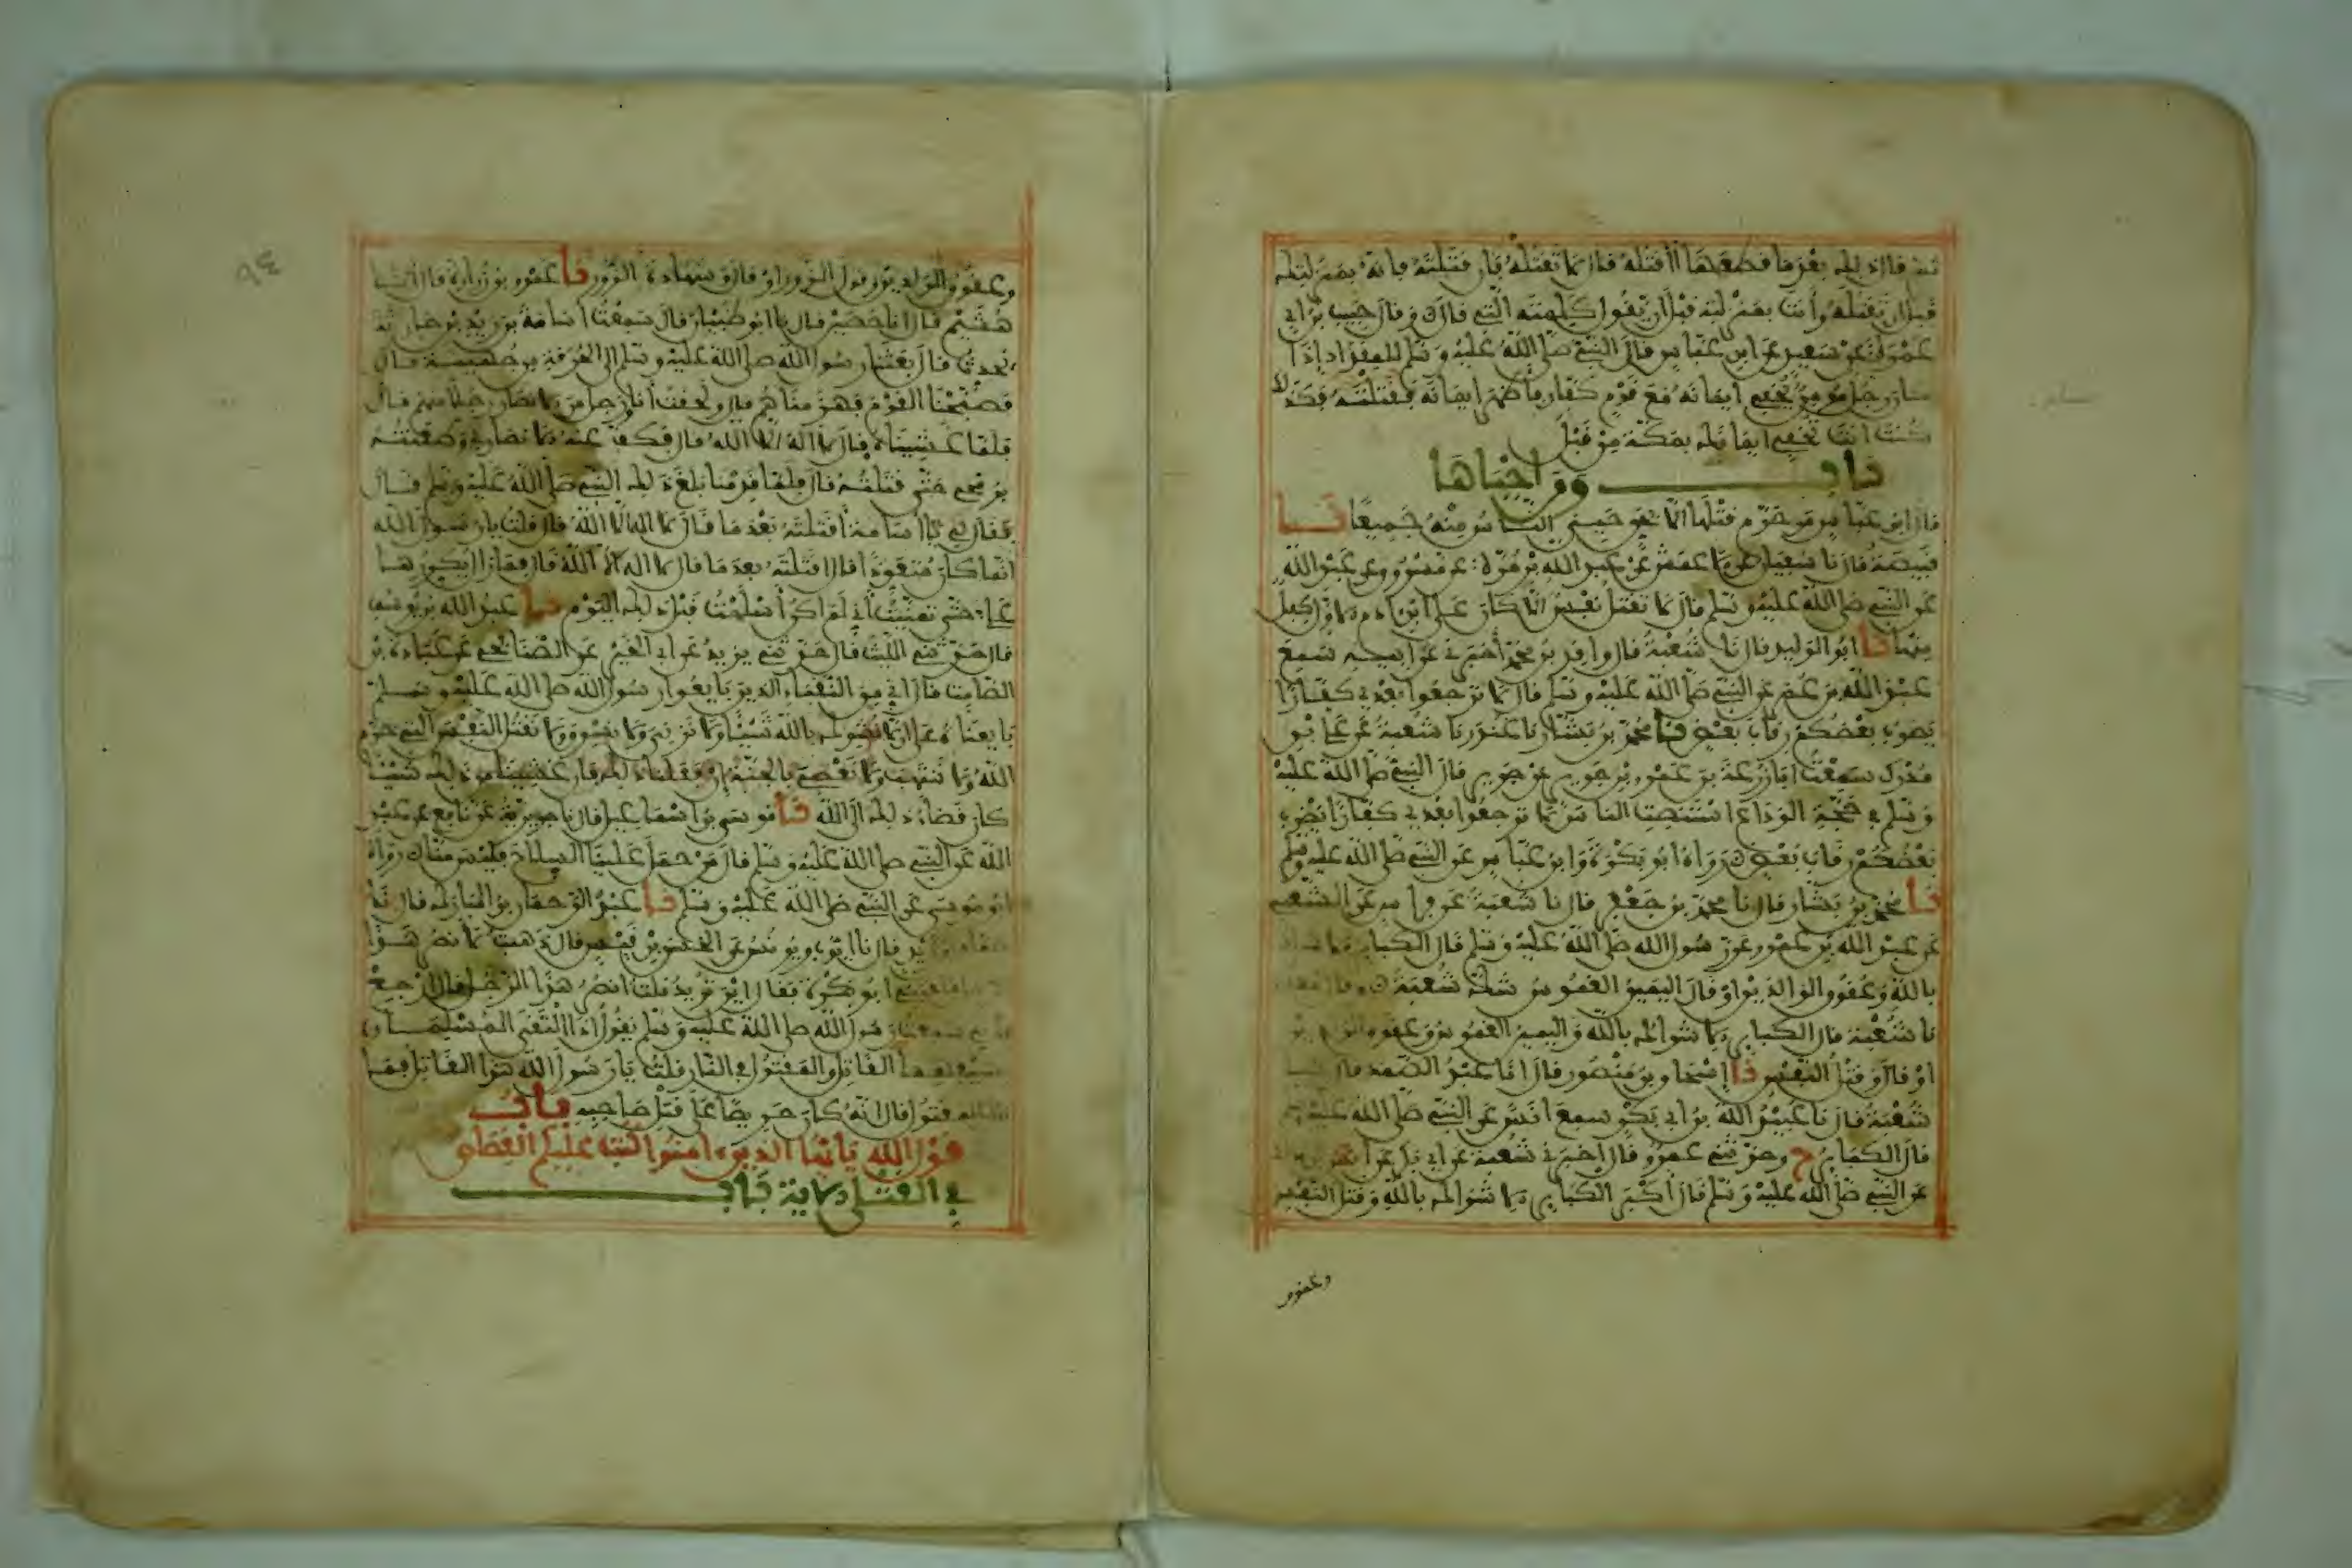 ثم قال ذلك بعدما قطعها أأقتله قال لا تقتله فإن قتلته فإنه بمنزلتك
قبل أن تقتله وأنت بمنزلته قبل أن يقول كلمته التي قال وقال حبيب بن أبي
عمرة عن سعيد عن ابن عباس قال النبي صلى الله عليه وسلم للمقداد إذا
كان رجل مؤمن يخفي إيمانه مع قوم كفار فأظهر إيمانه فقتلته فكذلك
كنت أنت تخفي إيمانك بمكة من قبل
باب ومن أحياها
قال ابن عباس من حرم قتلها إلا بحق حيي الناس منه جميعا نا
قبيصة قال نا سفيان عن الاعمش عن عبد الله بن مرة عن مسروق عن عبد الله
عن النبي صلى الله عليه وسلم قال لا تقتل نفس الا كان على ابن ادم الاول كفل
منها نا ابو الوليد قال نا شعبة قال واقد بن محمد أخبرني عن ابيه سمع
عبد الله بن عمر عن النبي صلى الله عليه وسلم قال لا ترجعوا بعدي كفارا
يضرب بعضكم رقاب بعض نا محمد بن بشار نا غندر نا شعبة عن علي بن
مدرك سمعت ابا زرعة بن عمرو بن جرير عن جرير قال النبي صلى الله عليه
وسلم في حجة الوداع استنصت الناس لا ترجعوا بعدي كفارا يضرب
بعضكم رقاب بعض رواه ابو بكرة وابن عباس عن النبي صلى الله عليه وسلم
نا محمد بن بشار قال نا محمد بن جعفر قال نا شعبة عن فراس عن الشعبي
عن عبد الله بن عمرو عن رسول الله صلى الله عليه وسلم قال الكبائر الاشراك
بالله وعقوق الوالدين او قال اليمين الغموس شك شعبة وقال معاذ
نا شعبة قال الكبائر الاشراك بالله واليمين الغموس وعقوق الوالدين
او قال وقتل النفس نا إسحاق بن منصور قال انا عبد الصمد قال نا
شعبة قال نا عبيد الله بن أبي بكر سمع انس عن النبي صلى الله عليه وسلم
قال الكبائر ح وحدثني عمرو قال اخبرنا شعبة عن ابي بكر عن انس
عن النبي صلى الله عليه وسلم قال أكبر الكبائر الاشراك بالله وقتل النفس
وعقوق
وعقوق الوالدين وقول الزور او قال وشهادة الزور نا عمرو بن زرارة قال انا
هشيم قال انا حصين قال نا ابو ظبيان قال سمعت اسامة بن زيد بن حارثة
يحدث قال بعثنا رسول الله صلى الله عليه وسلم الى الحرقة من جهينة قال
فصبحنا القوم فهزمناهم قال ولحقت أنا ورجل من الانصار رجلا منهم قال
فلما غشيناه قال لا اله الا الله قال فكف عنه الانصاري وطعنته
برمحي حتى قتلته قال فلما قدمنا بلغ ذلك النبي صلى الله عليه وسلم قال
فقال لي يا أسامة أقتلته بعد ما قال لا اله الا الله قال قلت يا رسول الله
انما كان متعوذا قال اقتلته بعد ما قال لا اله الا الله قال فما زال يكررها
علي حتى تمنيت أني لم اكن أسلمت قبل ذلك اليوم نا عبد الله بن يوسف
قال حدثني الليث قال حدثني يزيد عن ابي الخير عن الصنابحي عن عبادة بن
الصامت قال اني من النقباء الذين بايعوا رسول الله صلى الله عليه وسلم
بايعناه على ان لا نشرك بالله شيئا ولا نزني ولا نسرق ولا نقتل النفس التي حرم
الله ولا ننتهب ولا نعصي بالجنة إن فعلنا ذلك فإن غشينا من ذلك شيئا
كان قضاء ذلك الى الله نا موسى بن اسماعيل قال نا جويرية عن نافع عن عبد
الله عن النبي صلى الله عليه وسلم قال من حمل علينا السلاح فليس منا رواه
ابو موسى عن النبي صلى الله عليه وسلم نا عبد الرحمن بن المبارك قال نا
حماد بن زيد قال نا أيوب ويونس عن الحسن عن الاحنف بن قيس قال ذهبت لانصر هذا
الرجل فلقيني ابو بكرة فقال اين تريد قلت انصر هذا الرجل قال ارجع
فاني سمعت رسول الله صلى الله عليه وسلم يقول اذا التقى المسلمان
بسيفيهما فالقاتل والمقتول في النار قلت يا رسول الله هذا القاتل فما
بال المقتول قال انه كان حريصا على قتل صاحبه باب
قول الله يأيها الذين ءامنوا كتب عليكم القصاص
في القتلى الاية باب
٩٤